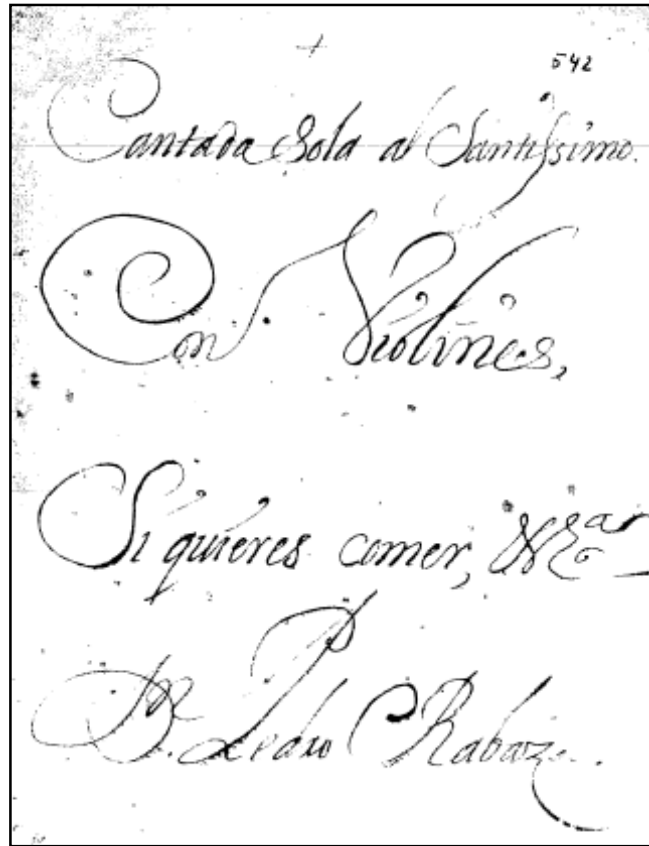 542
Cantada Sola al Santissimo.
Con Violines,
Si quieres comer,
Pedro Rabaza.